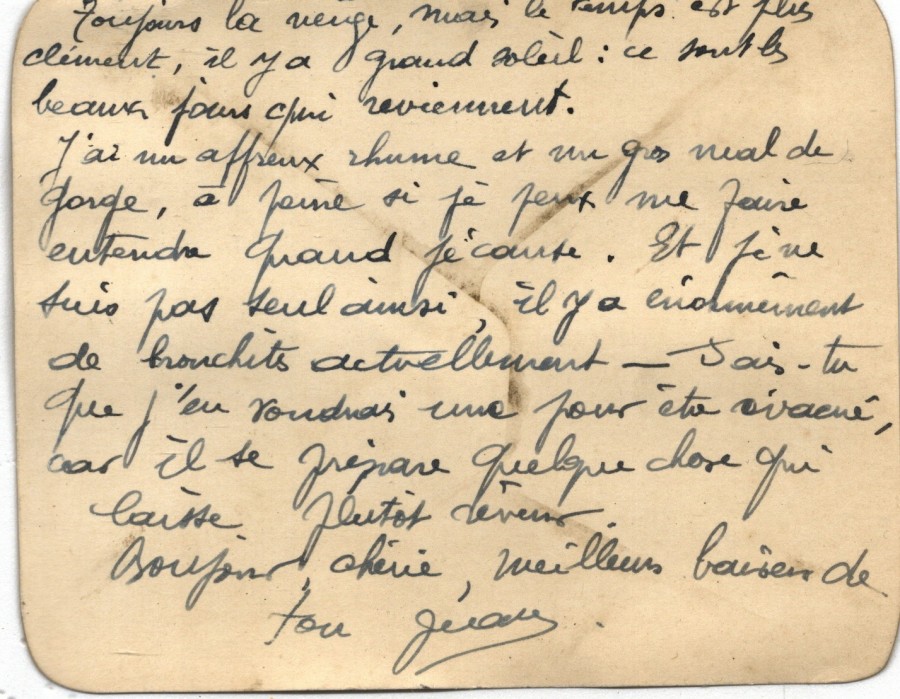 Toujours la neige, mais le temps est plus
clément, il y a grand soleil : ce sont les
beaux jours qui reviennent.
J'ai un affreux rhume et un gros mal de
gorge, à peine si je peux me faire
entendre quand je cause. Et je ne
suis pas seul ainsi, il y a énormément
de bronchites actuellement — Sais-tu
que j'en voudrais une pour être évacué,
car il se prépare quelque chose qui
laisse plutôt rêveur.
Bonjour, chérie, meilleurs baisers de
ton Jean.